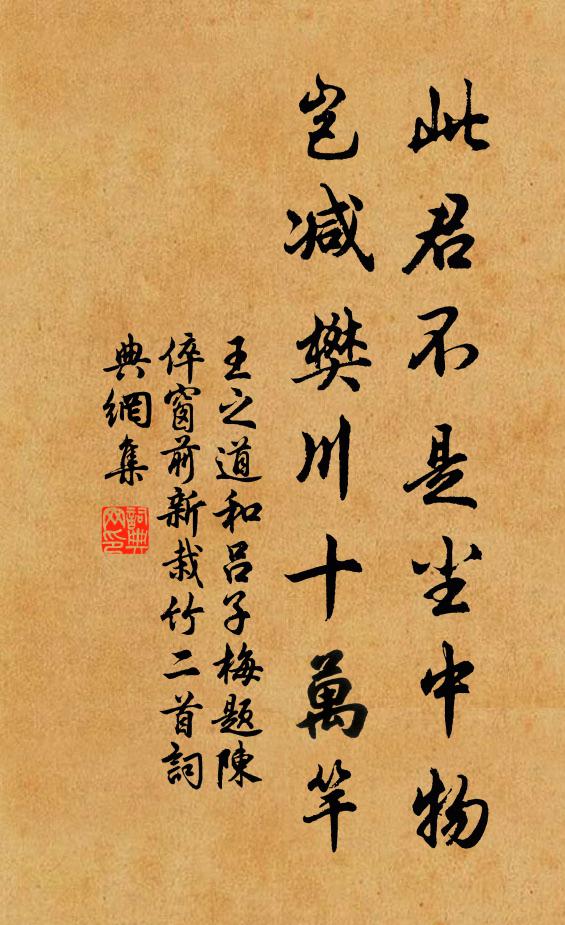 此君不是尘中物
岂减樊川十萬竿
王之道和呂子梅题陳
倅窗前新栽竹二首詞
典網集
詞典
网印